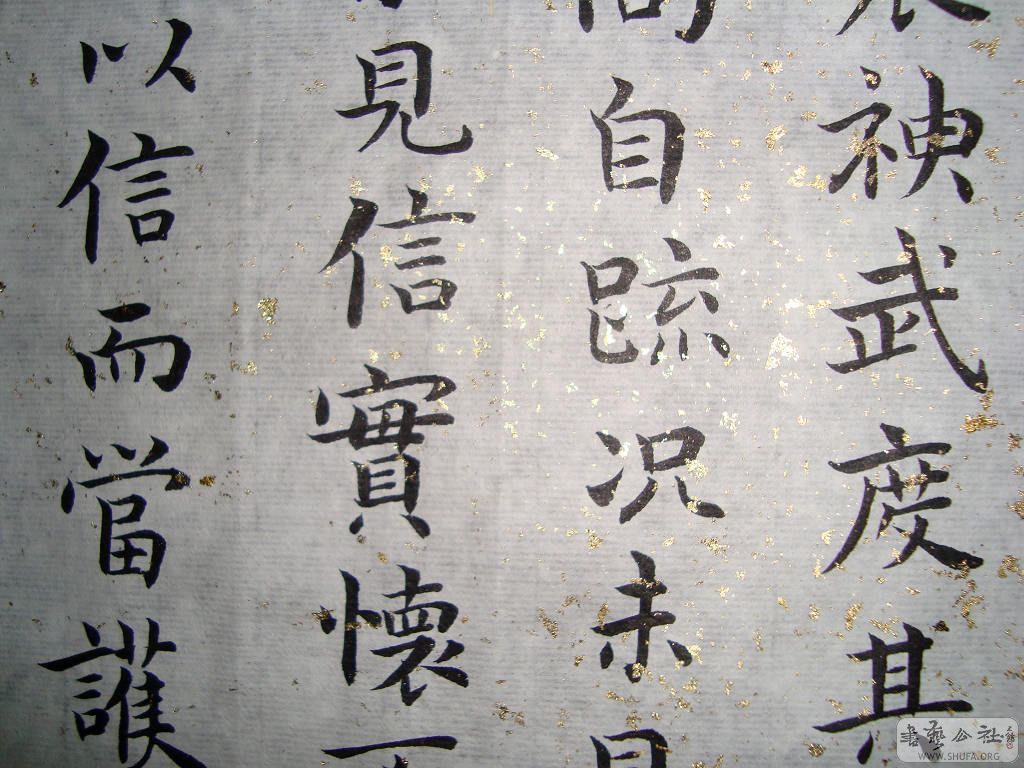 神武度其
自䟽况未
見信實懷
以信而當護
書藝公社
WWW.SHUFA.ORG